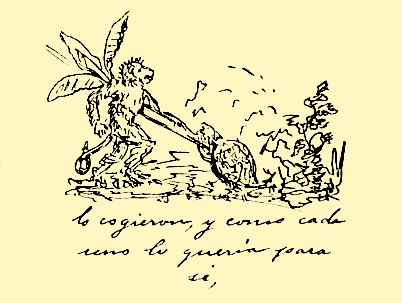 lo cogieron, y como cada
uno lo quería para
sí,